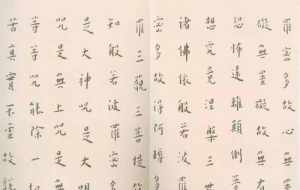 羅蜜多故心無
礙無罣礙故無
恐怖遠離顛倒
想究竟涅槃三
諸佛依般若波
蜜多故得阿耨
羅三藐三菩提
知般若波羅蜜
是大神咒是大
咒是無上咒是
等等咒能除一
苦真實不虛故